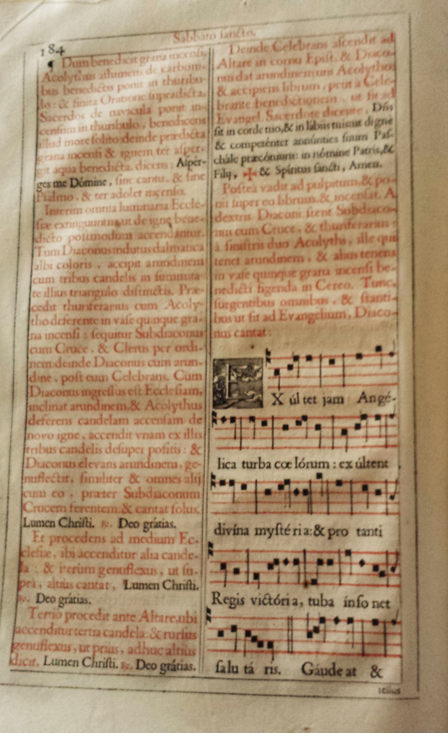 184
Sabbato sancto.
¶ Dum benedicit grana incensi,
Acolythus assumens de carbom-
bus benedictis ponit in thuribu-
lo: & finita Oratione supradicta,
Sacerdos de navicula ponit in-
censum in thuribulo, benedicens
illud more solito: deinde prædicta
grana incensi & ignem ter asper-
git aqua benedicta, dicens, Asper-
ges me Dómine, sine cantu, & sine
Psalmo, & ter adolet incenso.
Interim omnia luminaria Eccle-
siæ extinguuntur, ut de igne bene-
dicto postmodum accendantur.
Tum Diaconus indutus dalmatica
albi coloris, accipit arundinem
cum tribus candelis in summita-
te illius triangulo distinctis. Præ-
cedit thuriferarius cum Acoly-
tho deferente in vase quinque gra-
na incensi: sequitur Subdiaconus
cum Cruce, & Clerus per ordi-
nem: deinde Diaconus cum arun-
dine, post eum Celebrans. Cum
Diaconus ingressus est Ecclesiam,
inclinat arundinem, & Acolythus
deferens candelam accensam de
novo igne, accendit vnam ex illis
tribus candelis desuper positis: &
Diaconus elevans arundinem, ge-
nuflectit, similiter & omnes alij
cum eo, præter Subdiaconum
Crucem ferentem: & cantat solus,
Lumen Christi. ℟. Deo grátias.
Et procedens ad medium Ec-
clesiæ, ibi accenditur alia cande-
la: & iterum genuflexus, ut su-
pra, altius cantat, Lumen Christi.
℟. Deo grátias.
Tertio procedit ante Altare, ubi
accenditur tertia candela: & rursus
genuflexus, ut prius, adhuc altius
dicit, Lumen Christi. ℟. Deo grátias.
Deinde Celebrans ascendit ad
Altare in cornu Epist. & Diaco-
nus dat arundinem uni Acolythos
& accipiens librum, petit a Cele-
brante benedictionem, ut fit ad
Evangel. Sacerdote dicente, Dñs
sit in corde tuo, & in labiis tuis: ut digne
& competénter annúnties suum Pas-
chále præcónium: in nómine Patris, &
Filij, ✠ & Spíritus sancti, Amen.
Postea vadit ad pulpitum, & po-
nit super eo librum & incensat. A
dextris Diaconi stent Subdiaco-
nus cum Cruce, & thuriferarius:
à sinistris duo Acolythi, ille qui
tenet arundinem, & alius tenens
in vase quinque grana incensi be-
nedicti figenda in Cereo. Tunc,
surgentibus omnibus, & stanti-
bus ut fit ad Evangelium, Diaco-
nus cantat:
EX últet jam Angé-
lica turba cœ lórum: ex últent
divína mysté ri a: & pro tanti
Regis victóri a, tuba insonet
salu tá ris. Gáude at &